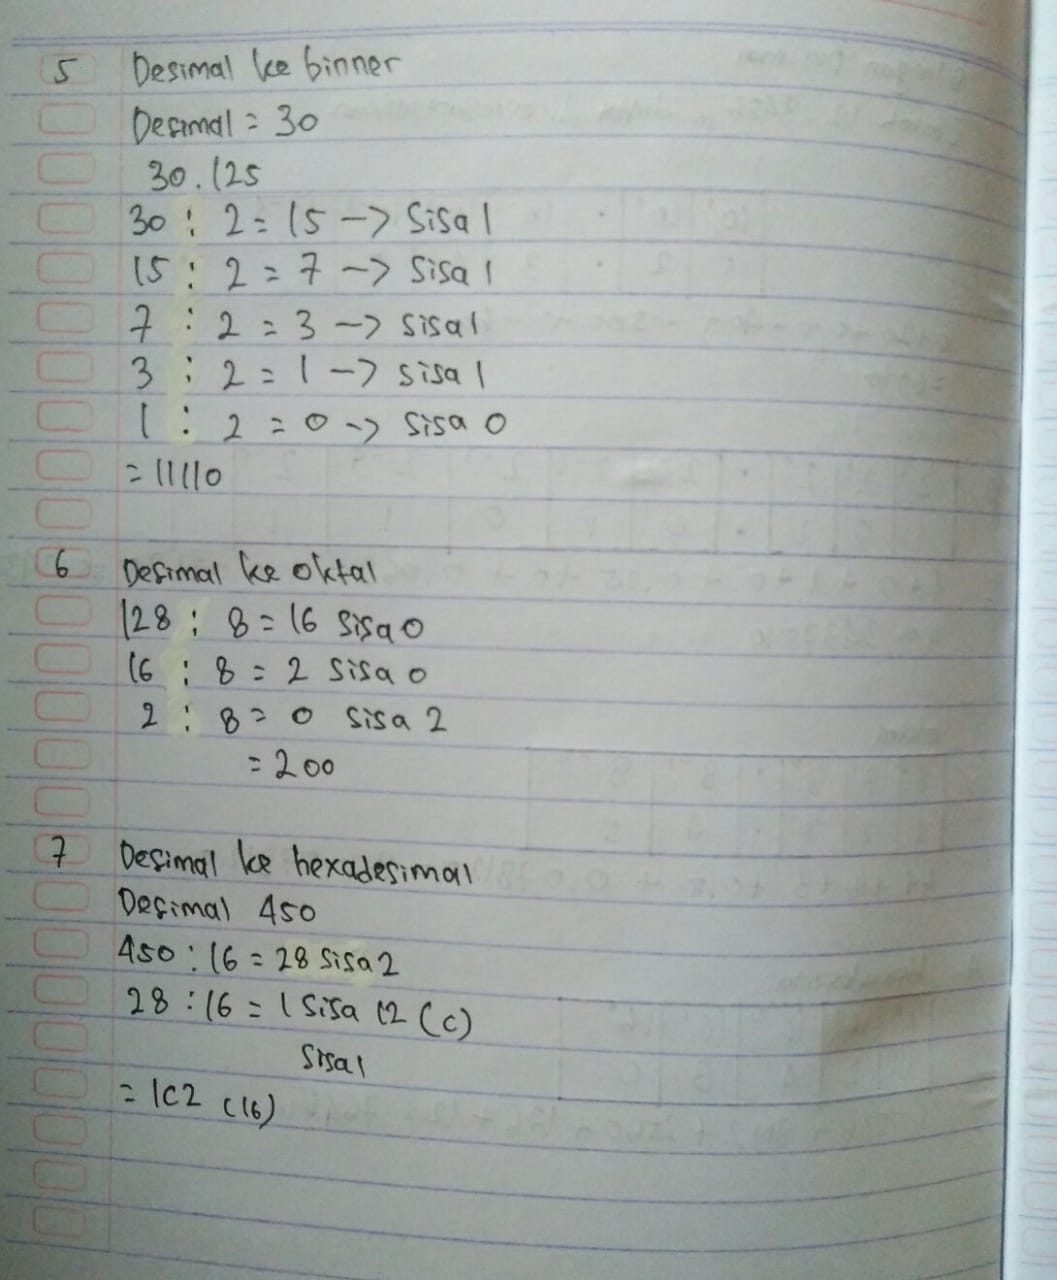 5 Desimal ke binner
Desimal = 30
30.125
30 : 2 = 15 -> Sisa 1
15 : 2 = 7 -> Sisa 1
7 : 2 = 3 -> sisa 1
3 : 2 = 1 -> sisa 1
1 : 2 = 0 -> Sisa 0
= 11110
6 Desimal ke oktal
128 : 8 = 16 Sisa 0
16 : 8 = 2 Sisa 0
2 : 8 = 0 Sisa 2
= 200
7 Desimal ke hexadesimal
Desimal 450
450 : 16 = 28 Sisa 2
28 : 16 = 1 Sisa 12 (C)
Sisa 1
= 1C2 (16)